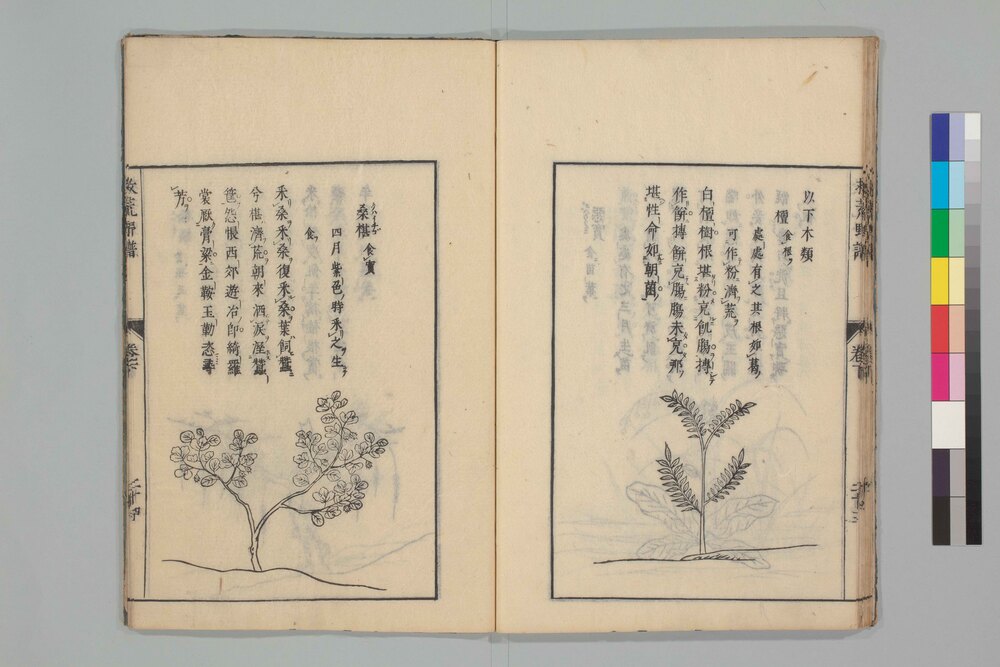 救荒野譜
卷下
以下木類
檀 食根
處處有之其根如葛
可作粉濟荒
白檀樹根堪粉充飢腸搏
作餅搏餅充腸腸未充那
堪性命如朝菌
桑椹 食實
四月紫色時采之生
食
采桑采桑復采桑葉飼蠶
兮椹濟荒朝來洒淚溼蠶
筐怨恨西郊遊冶郎綺羅
裳厭膏粱金鞍玉勒恣尋
芳
救荒野譜
卷下
二十四